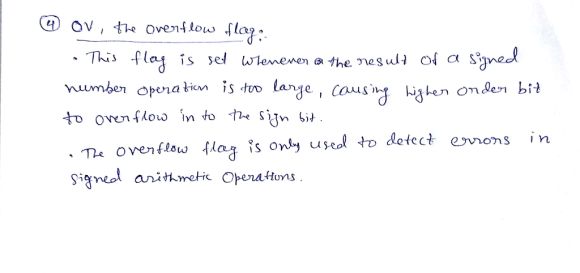 ④ OV, the overflow flag:-
• This flag is set whenever the result of a signed
number operation is too large, causing higher order bit
to overflow in to the sign bit.
• The overflow flag is only used to detect errors in
signed arithmetic operations.